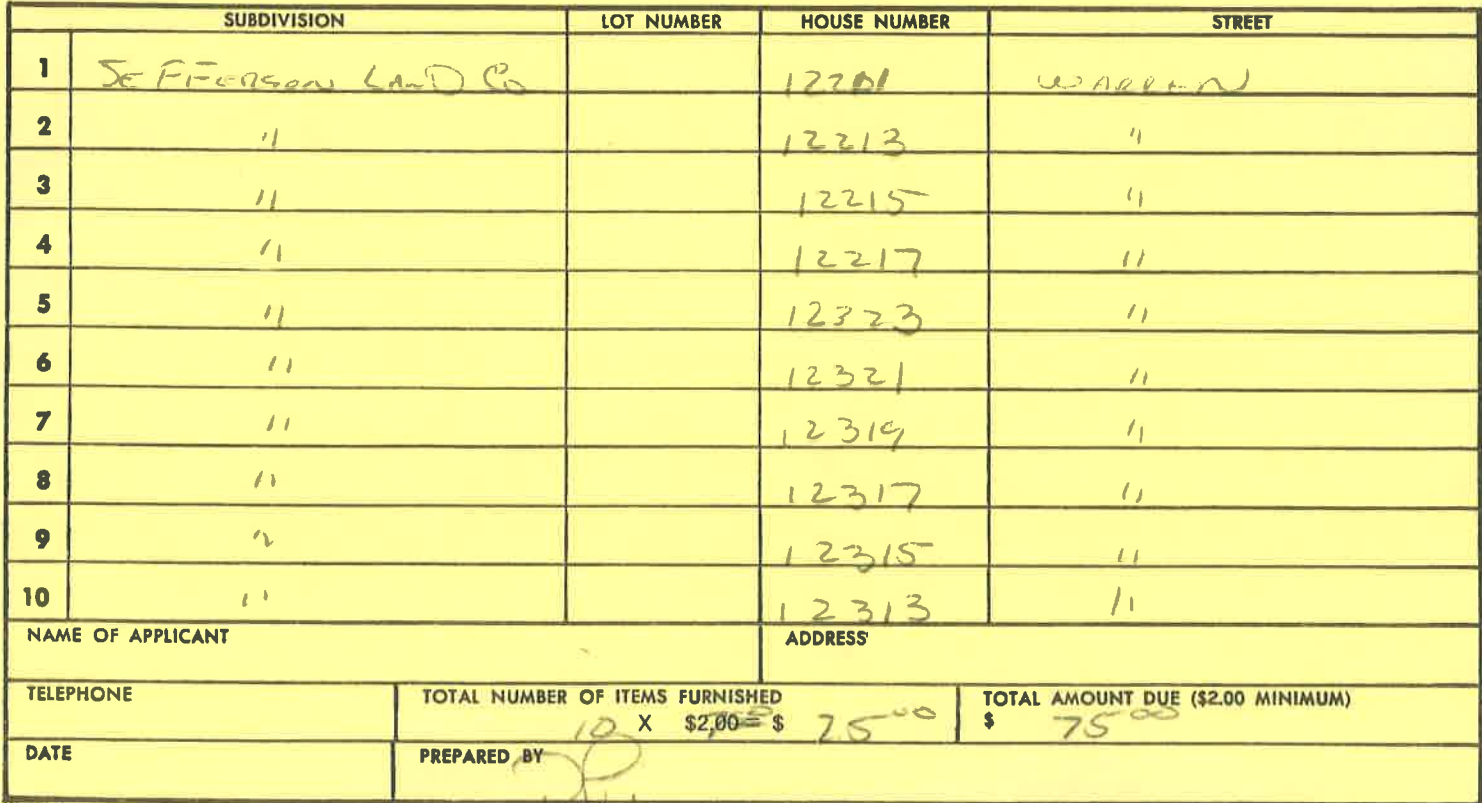 SUBDIVISION LOT NUMBER HOUSE NUMBER STREET
1 JEFFERSON LAND CO 12201 WARREN
2 " 12213 "
3 " 12215 "
4 " 12217 "
5 " 12323 "
6 " 12321 "
7 " 12319 "
8 " 12317 "
9 " 12315 "
10 " 12313 "
NAME OF APPLICANT ADDRESS
TELEPHONE TOTAL NUMBER OF ITEMS FURNISHED TOTAL AMOUNT DUE ($2.00 MINIMUM)
10 X $2.00 = $ 75 00 $ 75 00
DATE PREPARED BY